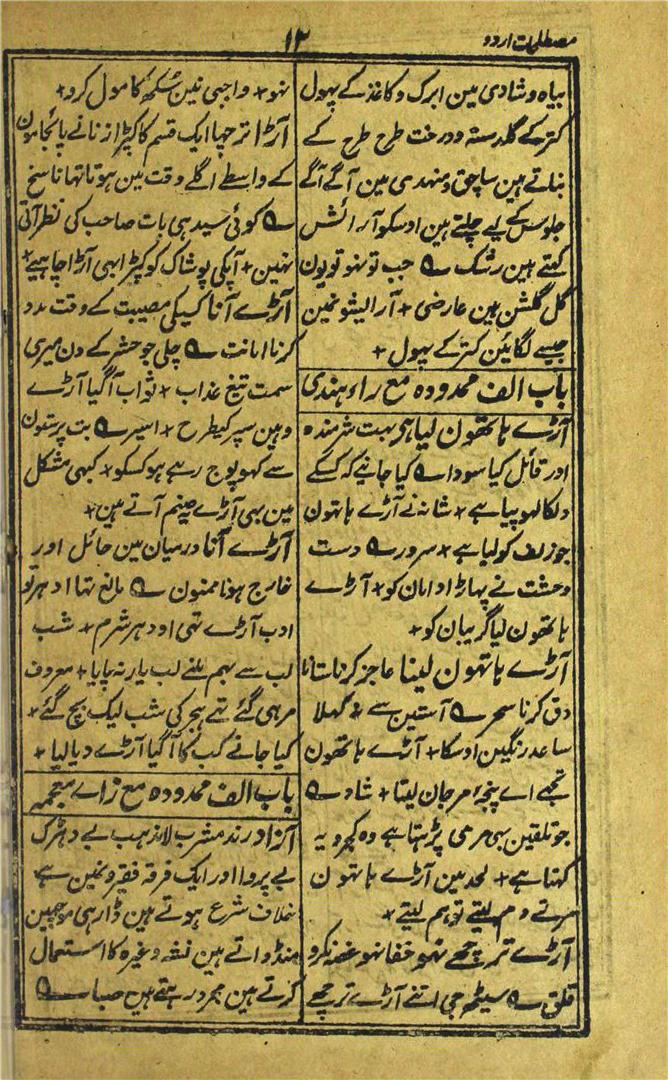 مصطلحات اردو
۱۲
بیاہ و شادی مین ابرک و کاغذ کے پھول
کترکے گلدستہ و درخت طرح طرح کے
بناتے ہین ساچق و منہدی مین آگے آگے
جلوس کے لیے چلتے ہین اوسکو آرائش
کہتے ہین رشک ؎ جب تو نہو تو یون
گل گلشن ہین عارضی + آرایشونمین
جیسے لگائین کترکے پھول +
باب الف ممدودہ مع راء ہندی
آڑے ہاتھون لیا ہی بہت شرمندہ
اور قائل کیا سودا ؎ کیا جانیے کہ کسکے
دلکا لہو پیا ہے + شانہ نے آڑے ہاتھون
جو زلف کو لیا ہے + سرور ؎ دست
وحشت نے پھاڑا دامان کو + آڑے
ہاتھون لیا گریبان کو +
آڑے ہاتھون لینا عاجز کرنا ستانا
دق کرنا سحر ؎ آستین سے نہ کھلا
ساعد رنگین اوسکا + آڑے ہاتھون
تجھے اے پنجۂ مرجان لیتا + شاد ؎
جو تلقین بھی مرمی پڑہتا ہے وہ کچھ و یہ
کہتا ہے + لحد مین آڑے ہاتھون
مرتے دم لیتے تو ہم لیتے +
آڑے ترچھے نہو خفا نہو غصہ نکرو
قلق ؎ سیٹھ جی اتنے آڑے ترچھے
نہو + واجبی نین سکھ کا مول کرو +
آڑا ترچھا ایک قسم کا کپڑا زنانے پائجامون
کے واسطے اگلے وقت مین ہوتا تھا ناسخ
؎ کوئی سیدہی بات صاحب کی نظر آتی
نہین + آپکی پوشاک کو کپڑا بھی آڑا چاہیے +
آڑے آنا کسیکی مصیبت کے وقت مدد
کرنا امانت ؎ چلی جو حشر کے دن میری
سمت تیغ عذاب + ثواب آگیا آڑے
وہین سپر کیطرح + اسیر ؎ بت پرستون
سے کہو پوج رہے ہو کسکو + کبھی مشکل
مین بھی آڑے یہ صنم آتے ہین +
آڑے آنا درمیان مین حائل اور
خارج ہونا ممنون ؎ مانع تھا ادہر تو
ادب آڑے تھی اودہر شرم + شب
لب سے بہم ملنے لب یار نہ پایا + معروف
مر ہی گئے تھے ہجر کی شب لیک بچ گئے +
کیا جانے کب کا آگیا آڑے دیا لیا +
باب الف ممدودہ مع زاے معجمہ
آزاد رند مشرب لامذہب بے دہڑک
بے پروا اور ایک فرقہ فقیرونمین ہے
خلاف شرع ہوتے ہین ڈارہی موچھین
منڈواتے ہین نشہ وغیرہ کا استعمال
کرتے ہین مجرد رہتے ہین صبا ؎